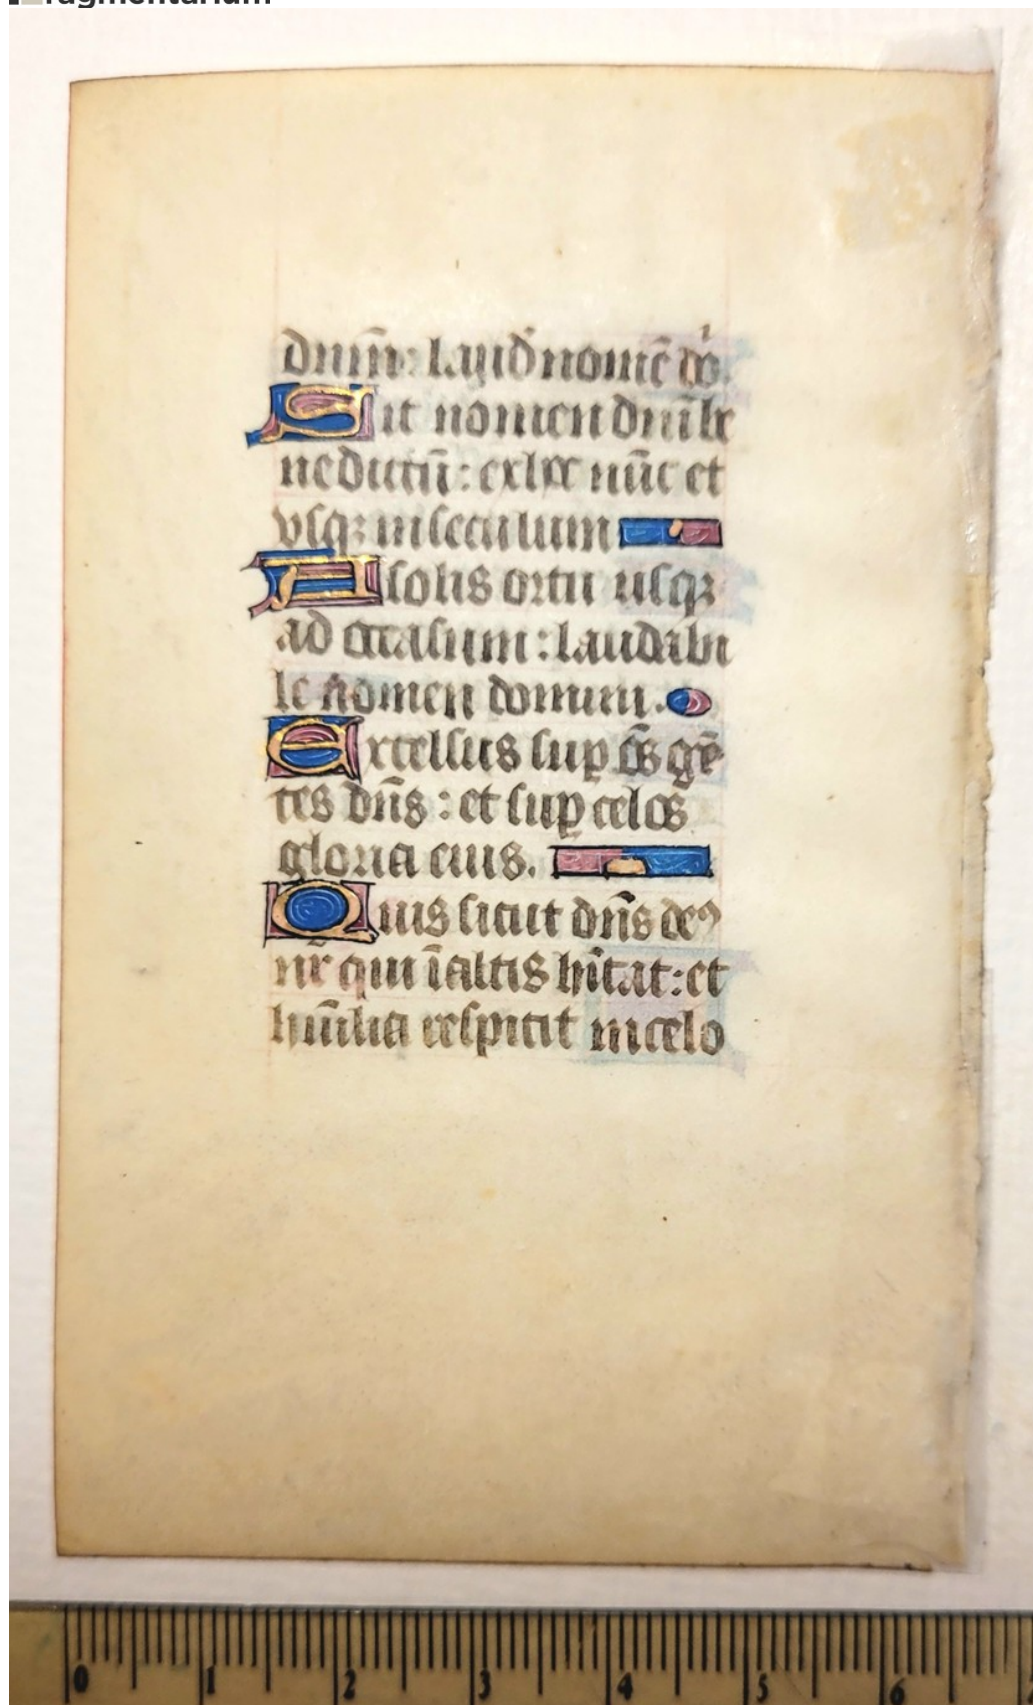 ragmentarium
dnm̄: laud nomē do
Sit nomen dnī be
nedictū: exhoc nūc et
vsqꝫ inseculum
A solis ortu usqꝫ
ad occasum: laudabi
le nomen domini.
Excelsus suꝑ oēs gē
tes dn̄s: et suꝑ celos
gloria eius.
Quis sicut dn̄s deꝰ
nr̄ qui īaltis hītat: et
humīlia respicit incelo
0 1 2 3 4 5 6